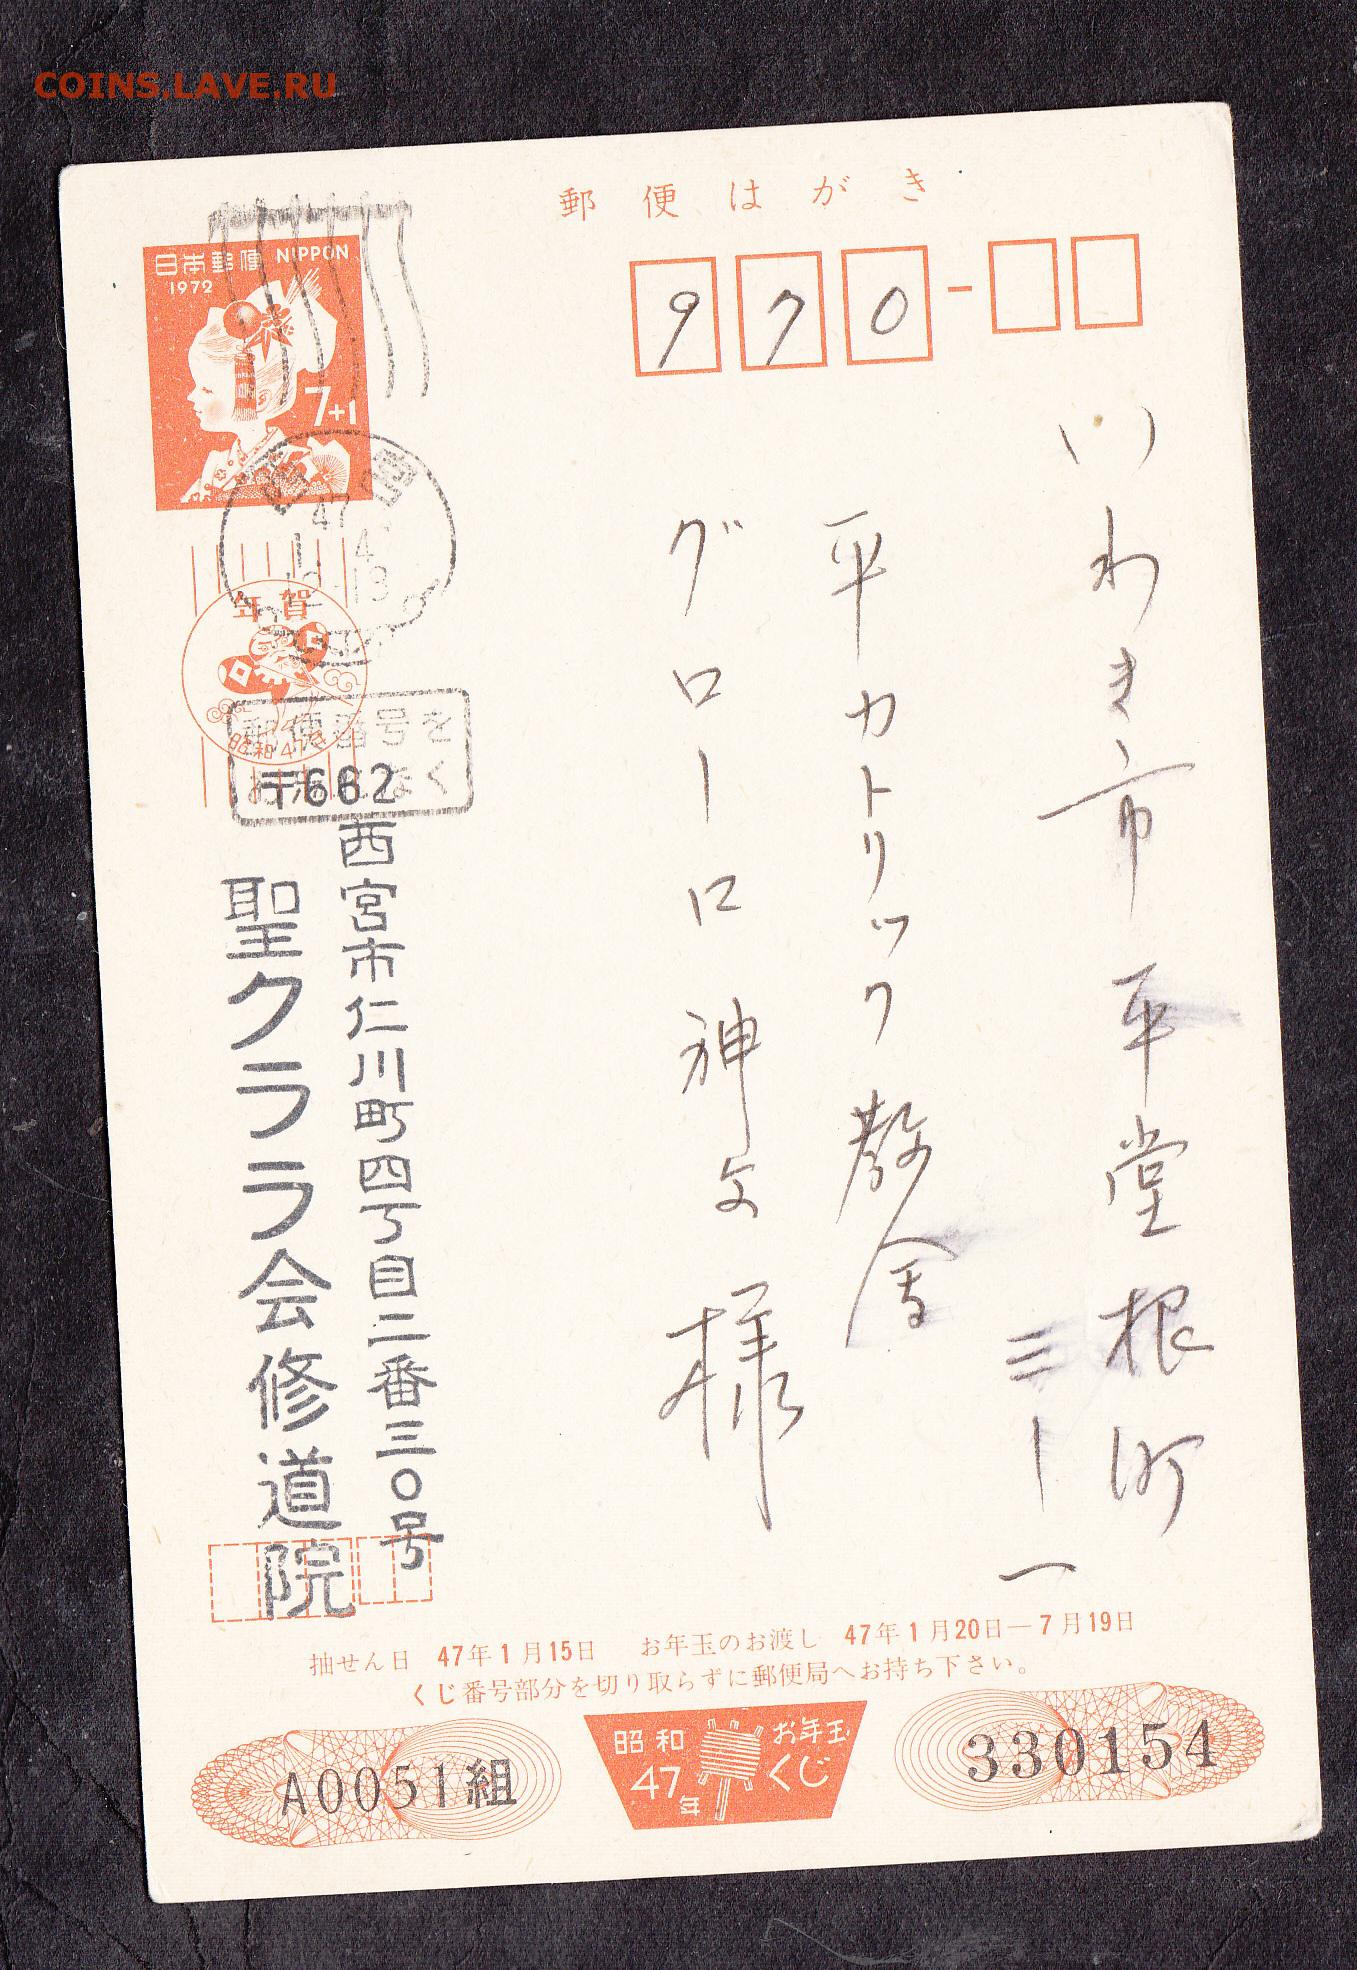 COINS.LAVE.RU
郵便はがき
日本郵便 NIPPON
1972
7+1
970
いわき市平堂根町
三ー一
平カトリック教会
グローロ神父様
西宮
47
年賀
昭和47年
郵便番号を
〒662
西宮市仁川町四丁目二番三〇号
聖クララ会修道院
抽せん日 47年1月15日 お年玉のお渡し 47年1月20日―7月19日
くじ番号部分を切り取らずに郵便局へお持ち下さい。
A0051組
昭和47年
お年玉くじ
330154